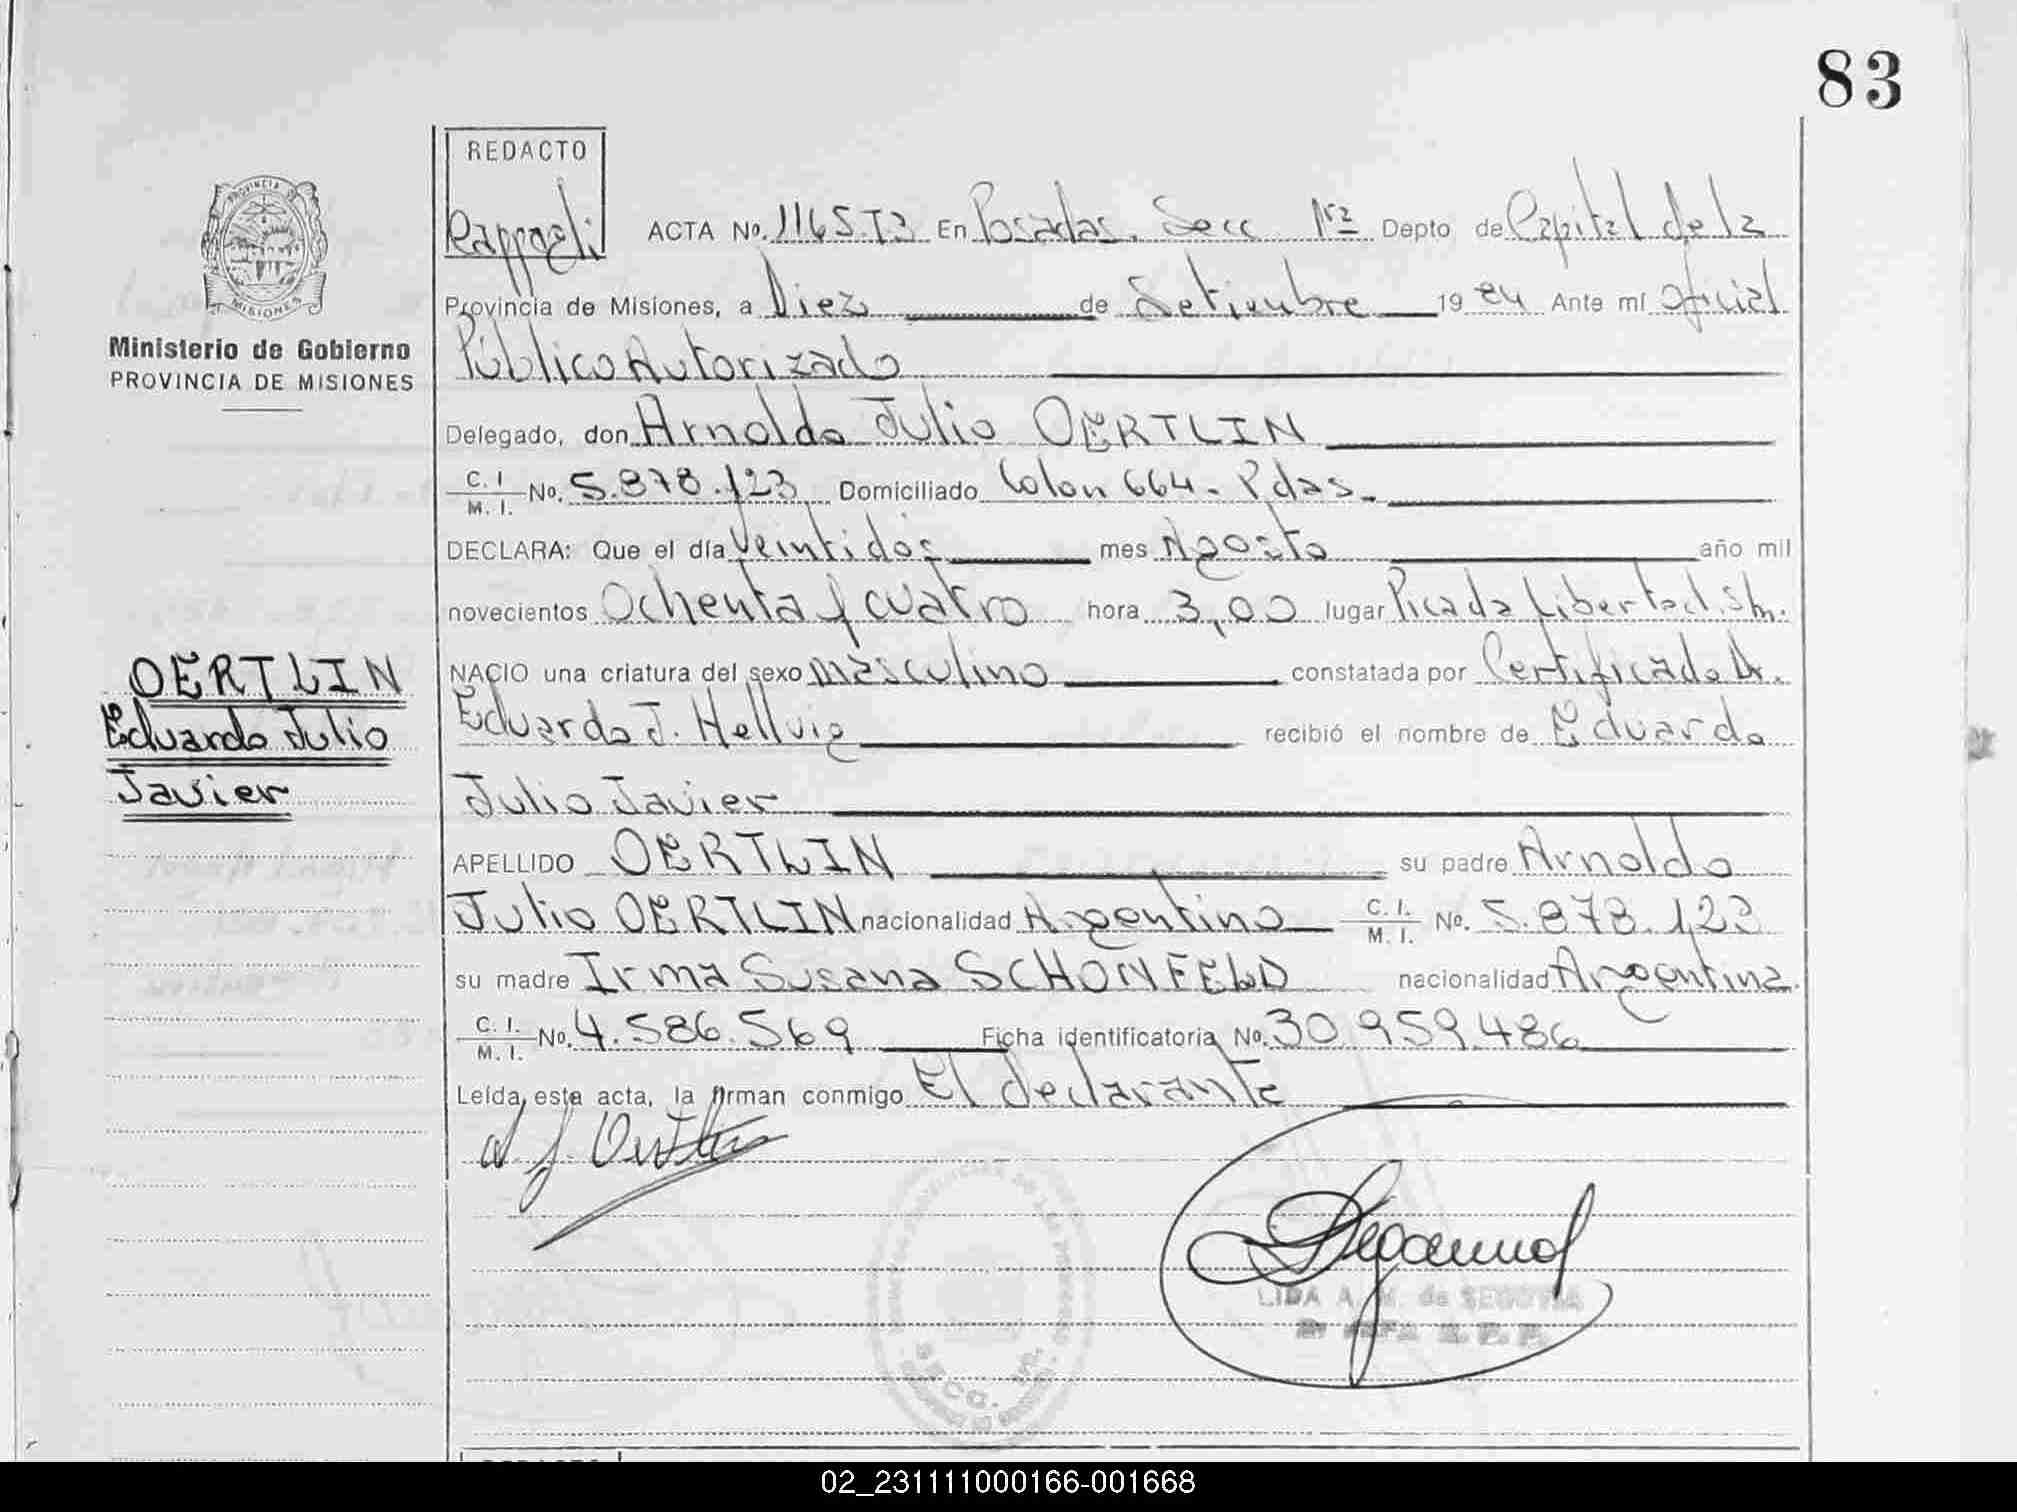 83
REDACTO
PROVINCIA DE
MISIONES
Ministerio de Gobierno
PROVINCIA DE MISIONES
ACTA No. 1165 T3 En Posadas. Secc 1ra Depto de Capital de la
Provincia de Misiones, a Diez de Setiembre 1984 Ante mí Oficial
Público Autorizado
Delegado, don Arnoldo Julio OERTLIN
C. I. M. I. No. 5.878.123 Domiciliado Colon 664 - Pdas.
DECLARA: Que el día Veintidos mes Agosto año mil
novecientos Ochenta y cuatro hora 3,00 lugar Picada Libertad. Stn.
NACIO una criatura del sexo masculino constatada por Certificado Dr.
Eduardo J. Hellvig recibió el nombre de Eduardo
Julio Javier
OERTLIN
Eduardo Julio
Javier
APELLIDO OERTLIN su padre Arnoldo
Julio OERTLIN nacionalidad Argentino C. I. M. I. No. 5.878.123
su madre Irma Susana SCHONFELD nacionalidad Argentina
C. I. M. I. No. 4.586.569 Ficha identificatoria No. 30 959.486
Leída esta acta, la firman conmigo El declarante
LIDA A. M. de SEGOVIA
SECC.
02_231111000166-001668